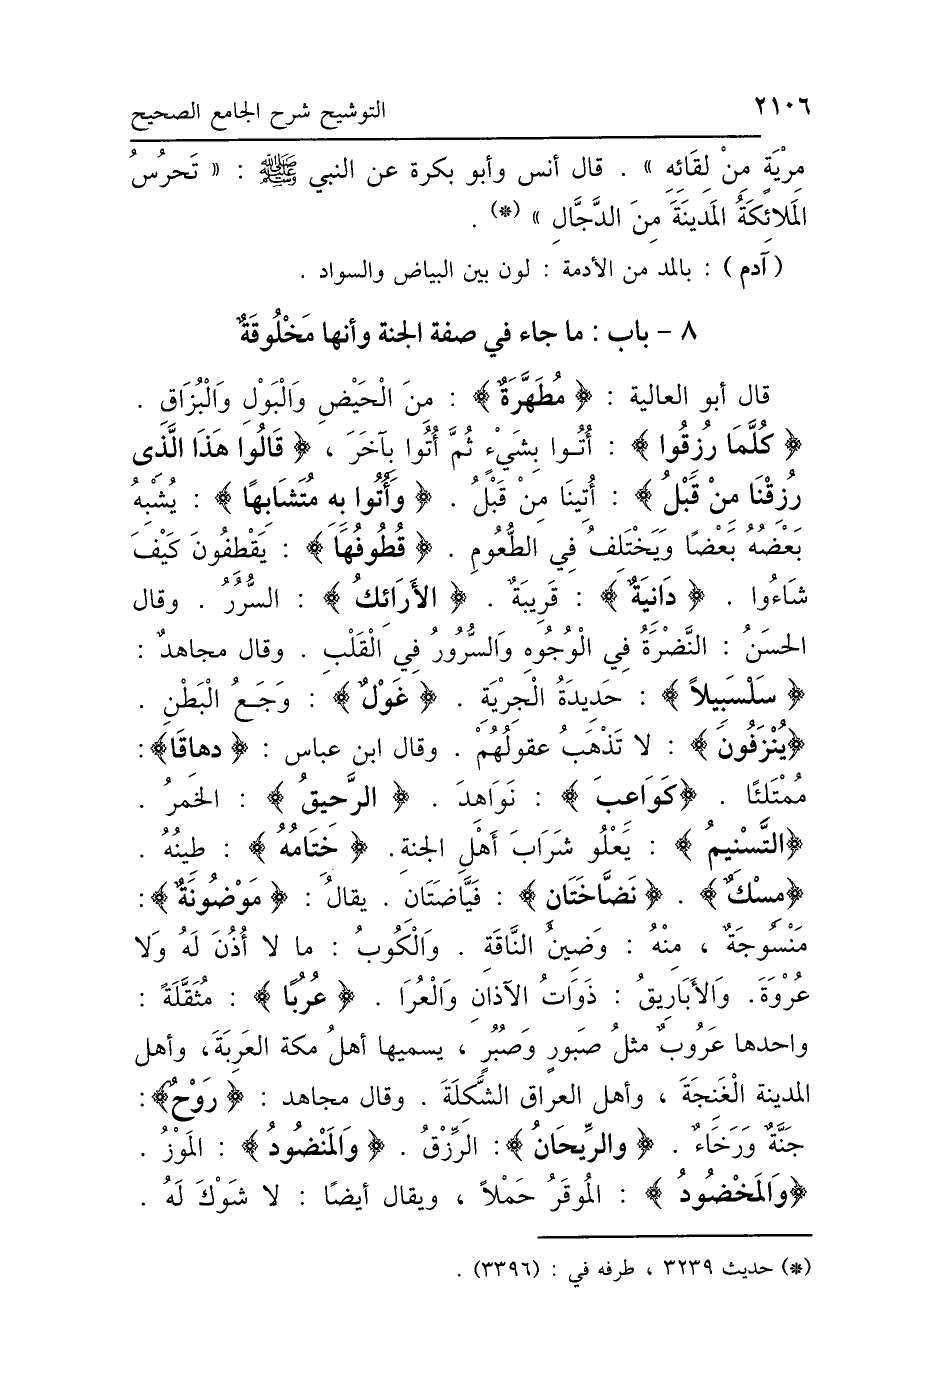 ٢١٠٦
التوشيح شرح الجامع الصحيح
مِرْيَةٍ مِنْ لِقَائِهِ » . قال أنس وأبو بكرة عن النبي ﷺ : « تَحْرُسُ
الْمَلَائِكَةُ الْمَدِينَةَ مِنَ الدَّجَّالِ » (*) .
( آدم ) : بالمد من الأدمة : لون بين البياض والسواد .
٨ - باب : ما جاء في صفة الجنة وأنها مَخْلُوقَةٌ
قال أبو العالية : ﴿ مُطَهَّرَةٌ ﴾ : مِنَ الْحَيْضِ وَالْبَوْلِ وَالْبُزَاقِ .
﴿ كُلَّمَا رُزِقُوا ﴾ : أُتُوا بِشَيْءٍ ثُمَّ أُتُوا بِآخَرَ ، ﴿ قَالُوا هَذَا الَّذِى
رُزِقْنَا مِنْ قَبْلُ ﴾ : أُتِينَا مِنْ قَبْلُ . ﴿ وَأُتُوا بِهِ مُتَشَابِهًا ﴾ : يُشْبِهُ
بَعْضُهُ بَعْضًا وَيَخْتَلِفُ فِي الطُّعُومِ . ﴿ قُطُوفُهَا ﴾ : يَقْطِفُونَ كَيْفَ
شَاءُوا . ﴿ دَانِيَةٌ ﴾ : قَرِيبَةٌ . ﴿ الأَرَائِكُ ﴾ : السُّرُرُ . وقال
الحسَنُ : النَّضْرَةُ فِي الْوُجُوهِ وَالسُّرُورُ فِي الْقَلْبِ . وقال مجاهدٌ :
﴿ سَلْسَبِيلاً ﴾ : حَدِيدَةُ الْجِرْيَةِ . ﴿ غَوْلٌ ﴾ : وَجَعُ الْبَطْنِ .
﴿يُنْزَفُونَ ﴾ : لا تَذْهَبُ عقولُهُمْ . وقال ابن عباس : ﴿ دِهاقًا﴾ :
مُمْتَلِئًا . ﴿كَوَاعِبَ ﴾ : نَوَاهِدَ . ﴿ الرَّحِيقُ ﴾ : الخمرُ .
﴿التَّسْنِيمُ ﴾ : يَعْلُو شَرَابَ أَهْلِ الجنة. ﴿ خِتَامُهُ ﴾ : طينُهُ .
﴿مِسْكٌ﴾ . ﴿ نَضَّاخَتَانِ ﴾ : فَيَّاضَتَانِ . يقالُ : ﴿ مَوْضُونَةٌ﴾ :
مَنْسُوجَةٌ ، مِنْهُ : وَضِينُ النَّاقَةِ . وَالْكُوبُ : ما لا أُذُنَ لَهُ وَلا
عُرْوَةَ. وَالأَبارِيقُ : ذَوَاتُ الآذانِ وَالْعُرَا . ﴿ عُرُبًا ﴾ : مُثَقَّلَةً :
واحدها عَرُوبٌ مثلُ صَبورٍ وَصُبُرٍ ، يسميها أهلُ مكة العَرِبَةَ، وأهل
المدينة الْغَنِجَةَ ، وأهل العراق الشَّكِلَةَ . وقال مجاهد : ﴿ رَوْحٌ﴾ :
جَنَّةٌ وَرَخَاءٌ . ﴿ والرِّيحَانُ ﴾ : الرِّزْقُ . ﴿ وَالمَنْضُودُ ﴾ : المَوْزُ .
﴿وَالمَخْضُودُ ﴾ : المُوقَرُ حَمْلاً ، ويقال أيضًا : لا شَوْكَ لَهُ .
(*) حديث ٣٢٣٩ ، طرفه في : (٣٣٩٦) .